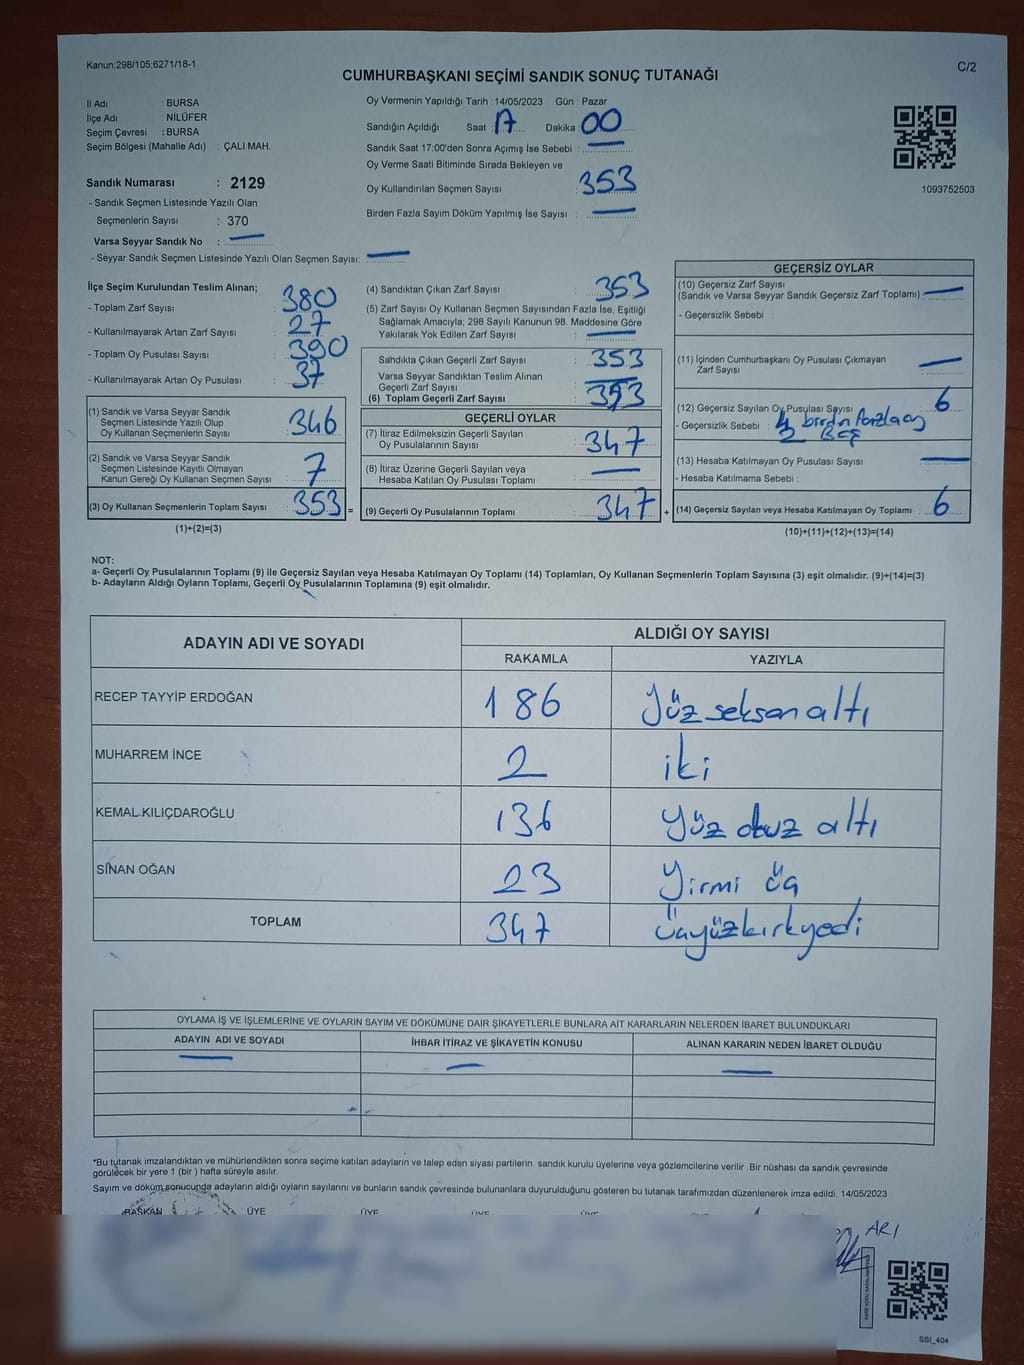 Kanun;298/105;6271/18-1
C/2
CUMHURBAŞKANI SEÇİMİ SANDIK SONUÇ TUTANAĞI
İl Adı : BURSA
İlçe Adı : NİLÜFER
Seçim Çevresi : BURSA
Seçim Bölgesi (Mahalle Adı) : ÇALI MAH.
Sandık Numarası : 2129
- Sandık Seçmen Listesinde Yazılı Olan
Seçmenlerin Sayısı : 370
Varsa Seyyar Sandık No :
- Seyyar Sandık Seçmen Listesinde Yazılı Olan Seçmen Sayısı:
Oy Vermenin Yapıldığı Tarih : 14/05/2023 Gün : Pazar
Sandığın Açıldığı Saat : 17 Dakika : 00
Sandık Saat 17:00'den Sonra Açımış İse Sebebi :
Oy Verme Saati Bitiminde Sırada Bekleyen ve
Oy Kullandırılan Seçmen Sayısı : 353
Birden Fazla Sayım Döküm Yapılmış İse Sayısı :
1093752503
İlçe Seçim Kurulundan Teslim Alınan;
- Toplam Zarf Sayısı : 380
- Kullanılmayarak Artan Zarf Sayısı : 27
- Toplam Oy Pusulası Sayısı : 390
- Kullanılmayarak Artan Oy Pusulası : 37
(1) Sandık ve Varsa Seyyar Sandık
Seçmen Listesinde Yazılı Olup
Oy Kullanan Seçmenlerin Sayısı : 346
(2) Sandık ve Varsa Seyyar Sandık
Seçmen Listesinde Kayıtlı Olmayan
Kanun Gereği Oy Kullanan Seçmen Sayısı : 7
(3) Oy Kullanan Seçmenlerin Toplam Sayısı : 353 =
(1)+(2)=(3)
(4) Sandıktan Çıkan Zarf Sayısı : 353
(5) Zarf Sayısı Oy Kullanan Seçmen Sayısından Fazla İse, Eşitliği
Sağlamak Amacıyla; 298 Sayılı Kanunun 98. Maddesine Göre
Yakılarak Yok Edilen Zarf Sayısı :
Sandıkta Çıkan Geçerli Zarf Sayısı : 353
Varsa Seyyar Sandıktan Teslim Alınan
Geçerli Zarf Sayısı :
(6) Toplam Geçerli Zarf Sayısı : 353
GEÇERLİ OYLAR
(7) İtiraz Edilmeksizin Geçerli Sayılan
Oy Pusulasının Sayısı : 347
(8) İtiraz Üzerine Geçerli Sayılan veya
Hesaba Katılan Oy Pusulası Toplamı :
(9) Geçerli Oy Pusulalarının Toplamı : 347 +
GEÇERSİZ OYLAR
(10) Geçersiz Zarf Sayısı :
(Sandık ve Varsa Seyyar Sandık Geçersiz Zarf Toplamı)
- Geçersizlik Sebebi :
(11) İçinden Cumhurbaşkanı Oy Pusulası Çıkmayan
Zarf Sayısı :
(12) Geçersiz Sayılan Oy Pusulası Sayısı : 6
- Geçersizlik Sebebi : 4 birden fazla oy
2 Boş
(13) Hesaba Katılmayan Oy Pusulası Sayısı :
- Hesaba Katılmama Sebebi :
(14) Geçersiz Sayılan veya Hesaba Katılmayan Oy Toplamı : 6
(10)+(11)+(12)+(13)=(14)
NOT:
a- Geçerli Oy Pusulalarının Toplamı (9) ile Geçersiz Sayılan veya Hesaba Katılmayan Oy Toplamı (14) Toplamları, Oy Kullanan Seçmenlerin Toplam Sayısına (3) eşit olmalıdır. (9)+(14)=(3)
b- Adayların Aldığı Oyların Toplamı, Geçerli Oy Pusulalarının Toplamına (9) eşit olmalıdır.
ADAYIN ADI VE SOYADI ALDIĞI OY SAYISI
RAKAMLA YAZIYLA
RECEP TAYYİP ERDOĞAN 186 Yüz seksen altı
MUHARREM İNCE 2 iki
KEMAL KILIÇDAROĞLU 136 Yüz otuz altı
SİNAN OĞAN 23 Yirmi üç
TOPLAM 347 Üçyüzkırkyedi
OYLAMA İŞ VE İŞLEMLERİNE VE OYLARIN SAYIM VE DÖKÜMÜNE DAİR ŞİKAYETLERLE BUNLARA AİT KARARLARIN NELERDEN İBARET BULUNDUKLARI
ADAYIN ADI VE SOYADI İHBAR İTİRAZ VE ŞİKAYETİN KONUSU ALINAN KARARIN NEDEN İBARET OLDUĞU
*Bu tutanak imzalandıktan ve mühürlendikten sonra seçime katılan adayların ve talep eden siyasi partilerin sandık kurulu üyelerine veya gözlemcilerine verilir. Bir nüshası da sandık çevresinde
görülecek bir yere 1 (bir) hafta süreyle asılır.
Sayım ve döküm sonucunda adayların aldığı oyların sayılarını ve bunların sandık çevresinde bulunanlara duyurulduğunu gösteren bu tutanak tarafımızdan düzenlenerek imza edildi. 14/05/2023
BAŞKAN ÜYE ÜYE ÜYE ÜYE
ARI
SSI_404